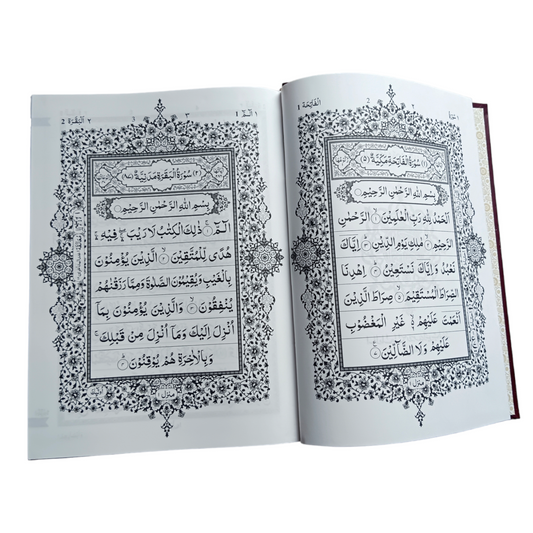 الفاتحة ١
٢
(١) سُوْرَةُ الْفَاتِحَةِ مَكِّيَّةٌ (٥)
بِسْمِ اللّٰهِ الرَّحْمٰنِ الرَّحِيْمِ
اَلْحَمْدُ لِلّٰهِ رَبِّ الْعٰلَمِيْنَ ۙ الرَّحْمٰنِ
الرَّحِيْمِ ۙ مٰلِكِ يَوْمِ الدِّيْنِ ۗ اِيَّاكَ
نَعْبُدُ وَاِيَّاكَ نَسْتَعِيْنُ ۗ اِهْدِنَا
الصِّرَاطَ الْمُسْتَقِيْمَ ۙ صِرَاطَ الَّذِيْنَ
اَنْعَمْتَ عَلَيْهِمْ ۙ غَيْرِ الْمَغْضُوْبِ
عَلَيْهِمْ وَلَا الضَّآلِّيْنَ
البقرة ٢
٣
الٓمّٓ ١
(٢) سُوْرَةُ الْبَقَرَةِ مَدَنِيَّةٌ (٨٧)
بِسْمِ اللّٰهِ الرَّحْمٰنِ الرَّحِيْمِ
الٓمّٓ ۚ ذٰلِكَ الْكِتٰبُ لَا رَيْبَ ۛ فِيْهِ ۛ
هُدًى لِّلْمُتَّقِيْنَ ۙ الَّذِيْنَ يُؤْمِنُوْنَ
بِالْغَيْبِ وَيُقِيْمُوْنَ الصَّلٰوةَ وَمِمَّا رَزَقْنٰهُمْ
يُنْفِقُوْنَ ۙ وَالَّذِيْنَ يُؤْمِنُوْنَ بِمَآ
اُنْزِلَ اِلَيْكَ وَمَآ اُنْزِلَ مِنْ قَبْلِكَ ۚ
وَبِالْاٰخِرَةِ هُمْ يُوْقِنُوْنَ